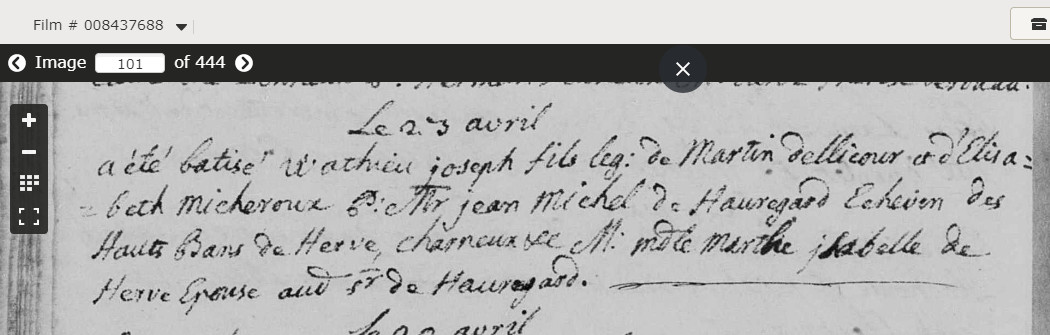 Film # 008437688
Image 101 of 444
Le 23 avril
a été batisé Mathieu joseph fils leg: de Martin dellicour et d'Elisa=
=beth Micheroux P: Mr jean Michel de Hauregard Echevin des
Hauts Bans de Herve, charneux &c M: mdle Marthe jsabelle de
Herve Epouse aud sr de Hauregard.
avril